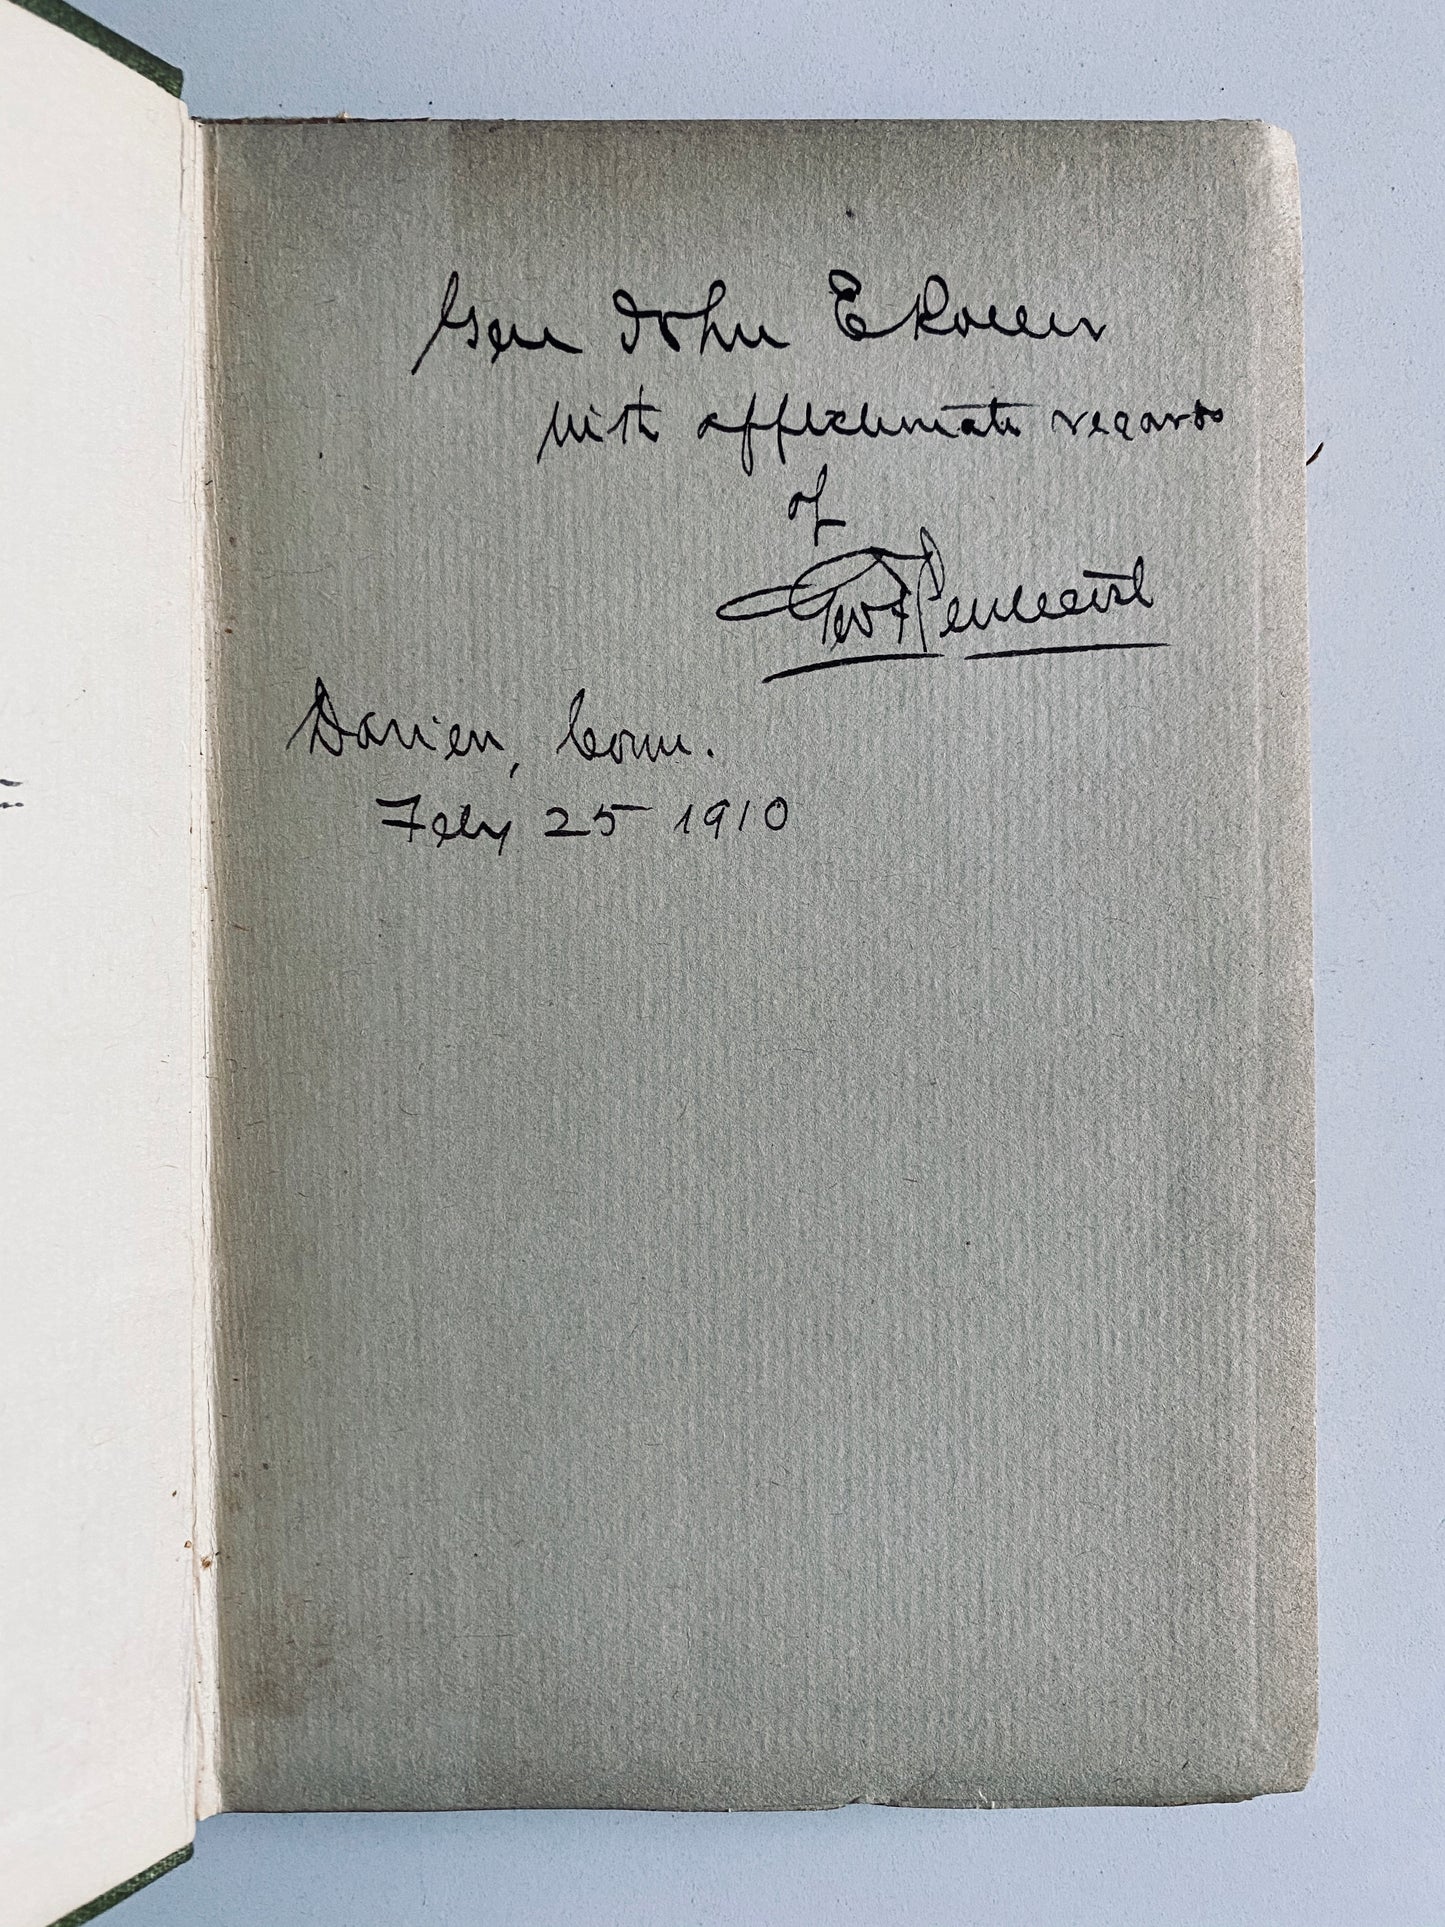 Gen John E Roller
with affectionate regards
of
Geo F Pentecost
Darien, Conn.
Feby 25 1910